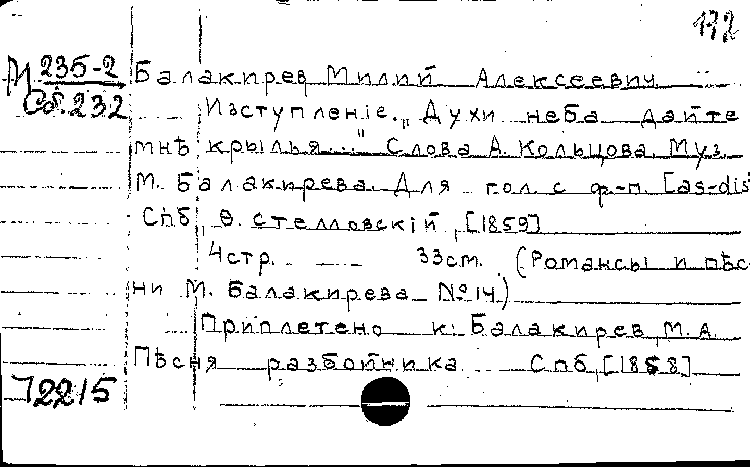 172
М 235-2
Сб. 232
Балакирев Милий Алексеевич
Изступленiе. "Духи неба дайте
мнѣ крылья..." Слова А. Кольцова. Муз.
М. Балакирева. Для гол. с ф-п. [as-dis
Спб, Ѳ. Стелловскiй, [1859]
4стр. 33см. (Романсы и пѣс
ни М. Балакирева №14)
Приплетено к: Балакирев, М. А.
Пѣсня разбойника Спб, [1858]
72215